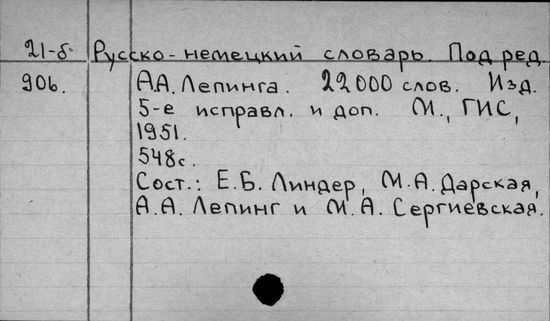 21-б Русско-немецкий словарь. Под ред.
906. А.А. Лепинга. 22000 слов. Изд.
5-е исправл. и доп. М., ГИС,
1951.
548с.
Сост.: Е.Б. Линдер, М.А. Дарская,
А.А. Лепинг и М.А. Сергиевская.